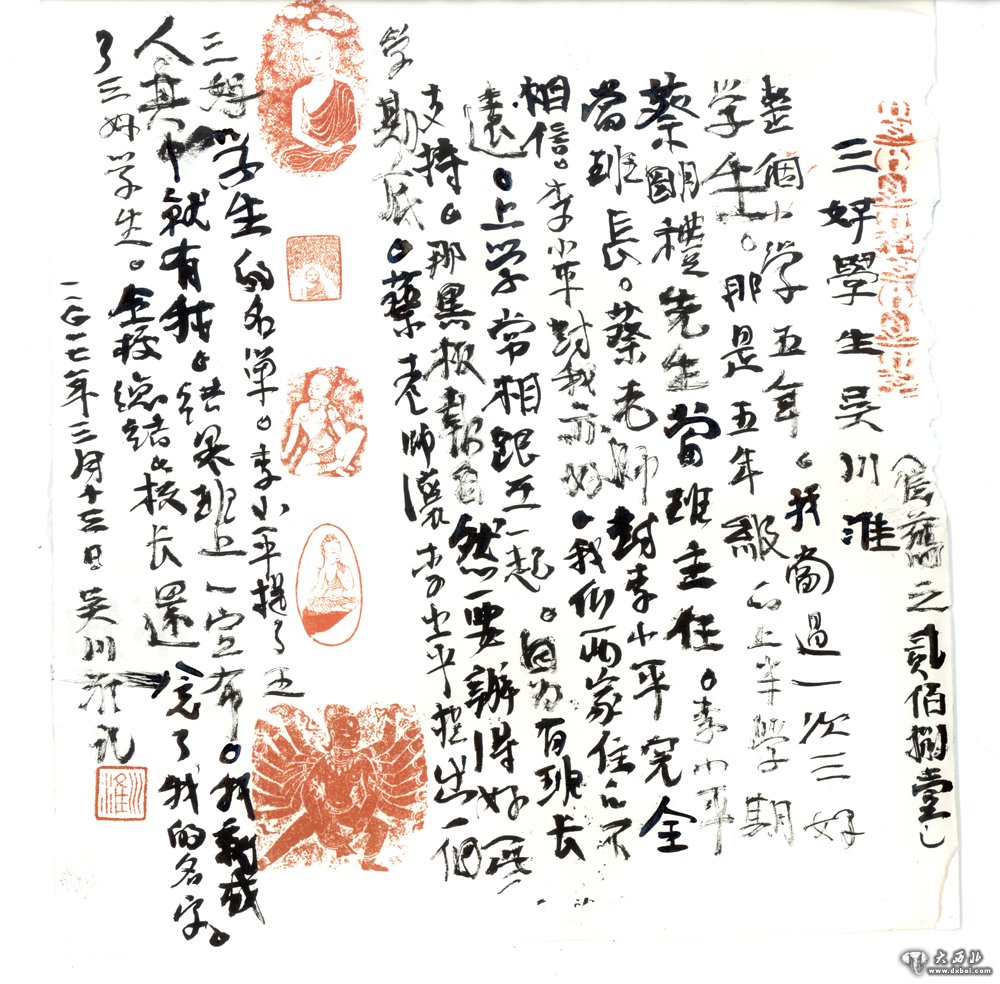 舊之贰佰捌壹
三好學生 吴川淮
整個小学五年。我當過一次三好
学生。那是五年級的上半學期
蔡朙禮先生當班主任。李小平
當班長。蔡老師對李小平完全
相信。李小平對我亦好。我们两家住的不
遠。上学常相跟在一起。因为有班长
支持。那黑板報自然要辦得好。
学期底。蔡老师讓李小平提出一個
三好学生的名单。李小平提了五
人其中就有我。结果班上一宣布。我就成
了三好学生。全校總結。校长還念了我的名字。
二〇一七年三月十三日 吴川淮记
大西北
www.dxbei.com